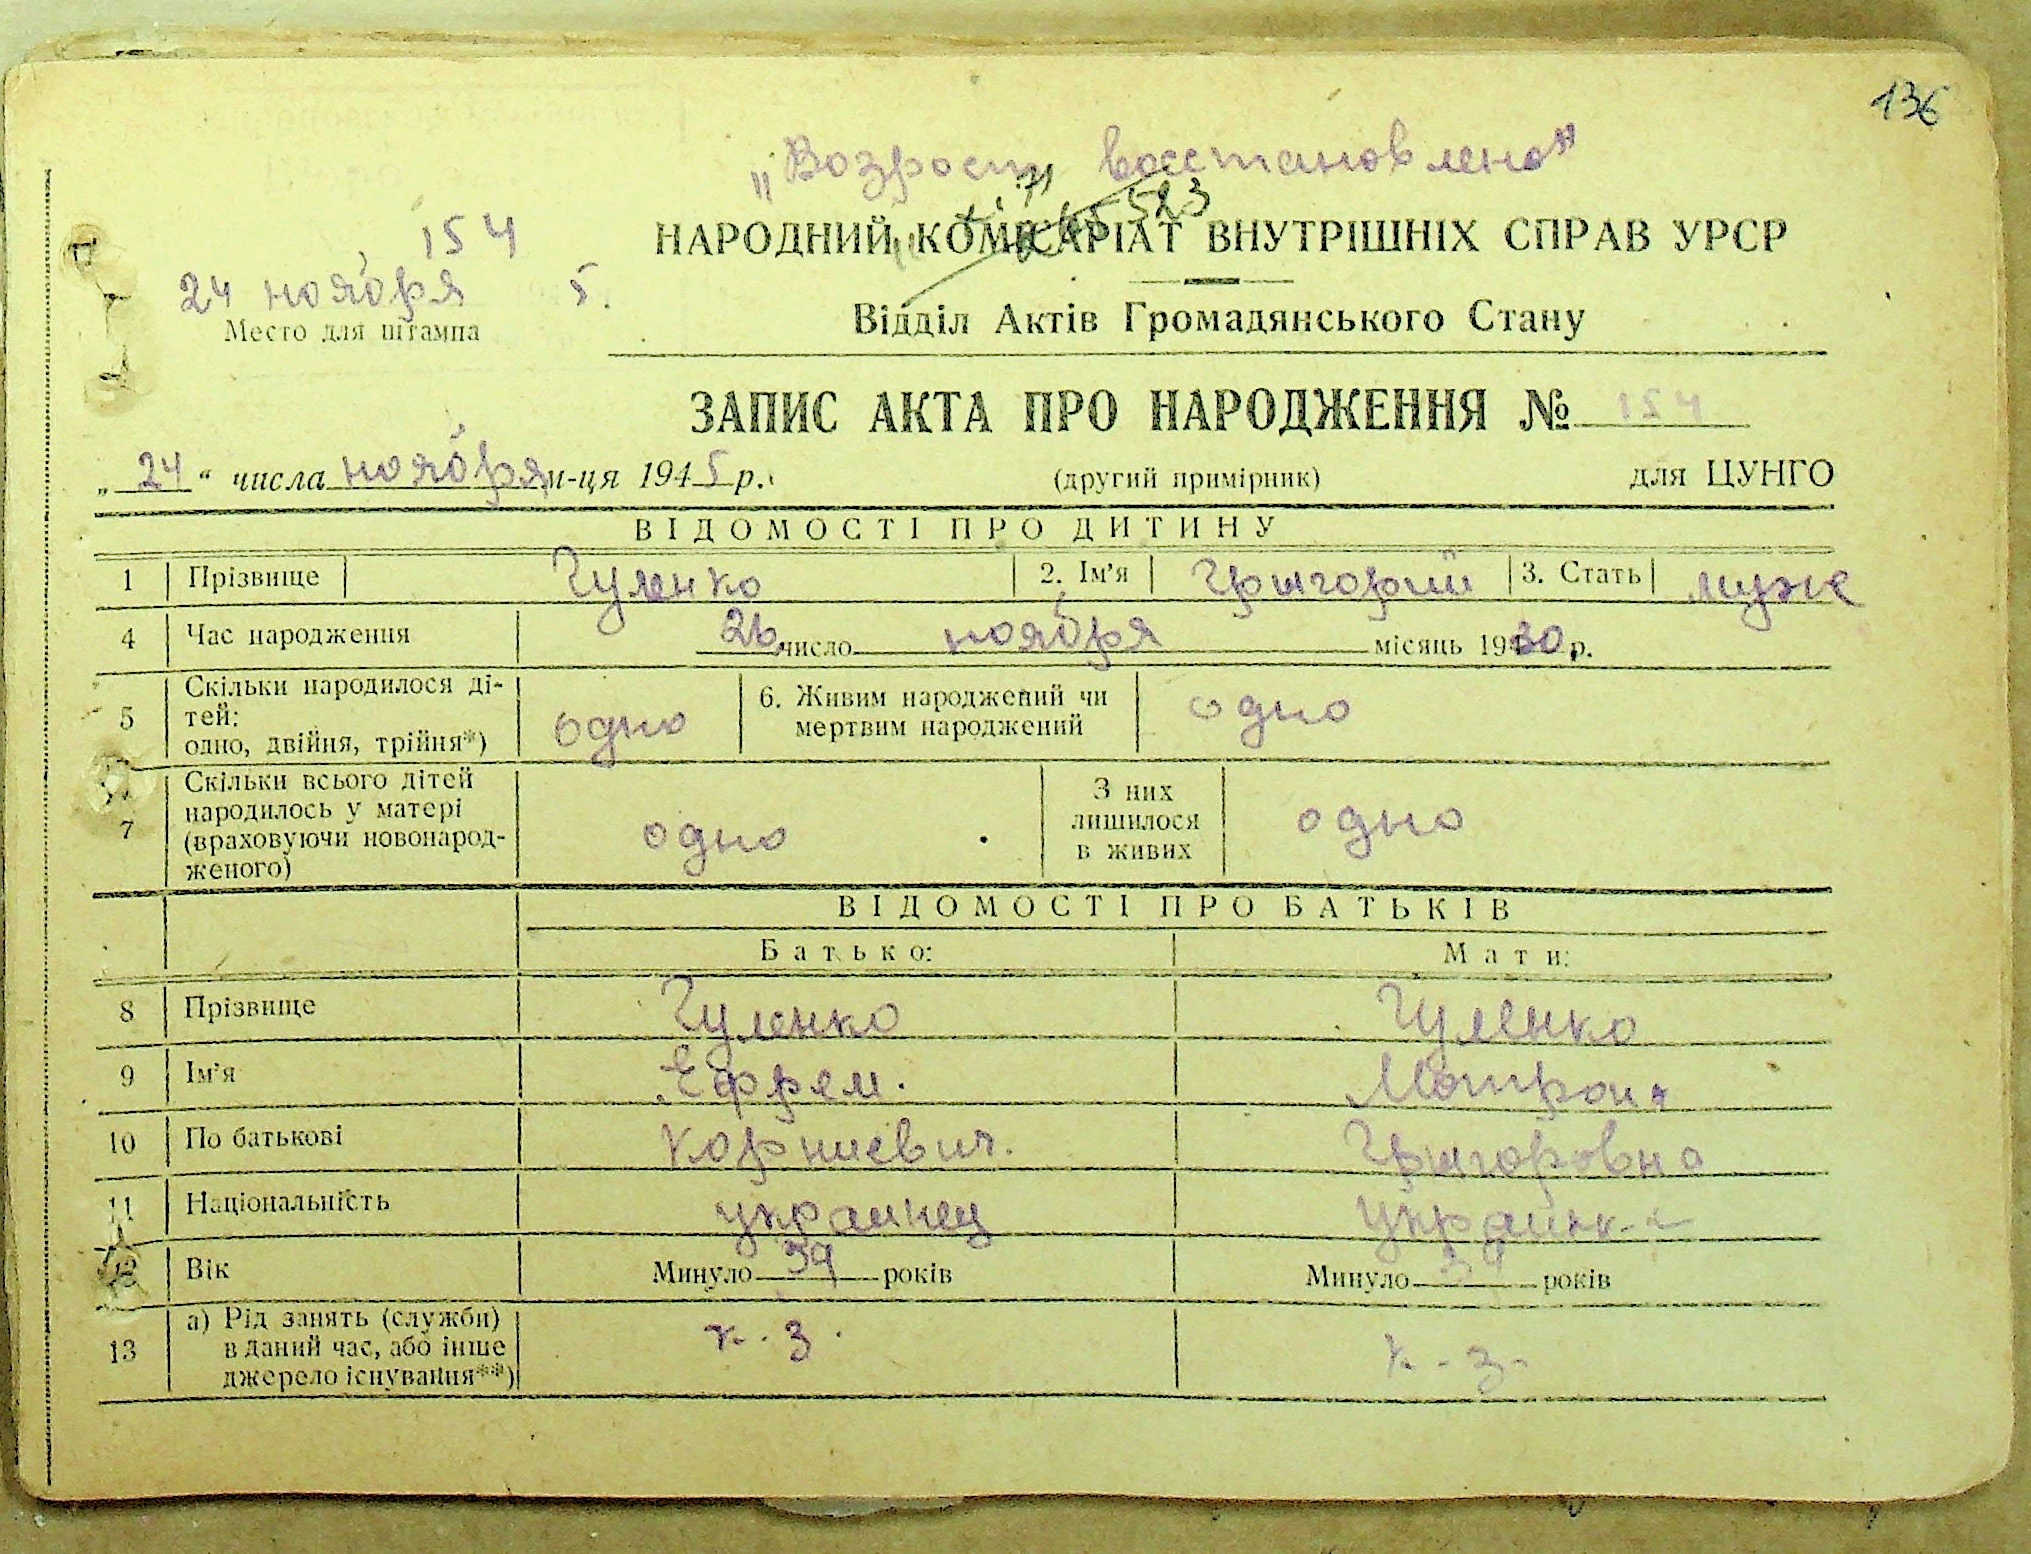 136
„Возрост восстановлено"
523
НАРОДНИЙ КОМІСАРІАТ ВНУТРІШНІХ СПРАВ УРСР
154
24 ноября 5.
Место для штампа
Відділ Актів Громадянського Стану
ЗАПИС АКТА ПРО НАРОДЖЕННЯ № 154
„ 24 “ числа ноября м-ця 1945 р. (другий примірник) для ЦУНГО
ВІДОМОСТІ ПРО ДИТИНУ
1 Прізвище Гуленко 2. Ім’я Григорий 3. Стать муж
4 Час народження 26 число ноября місяць 1930 р.
5 Скільки народилося ді-
тей:
одно, двійня, трійня*) одно 6. Живим народжений чи
мертвим народжений одно
7 Скільки всього дітей
народилось у матері
(враховуючи новонарод-
женого) одно З них
лишилося
в живих одно
ВІДОМОСТІ ПРО БАТЬКІВ
Батько: Мати:
8 Прізвище Гуленко Гуленко
9 Ім’я Ефрем. Мотрона
10 По батькові Корниевич. Григоровна
11 Національність украинец украинка
12 Вік Минуло 39 років Минуло років
13 а) Рід занять (служби)
в даний час, або інше
джерело існування**) к. з. к. з.